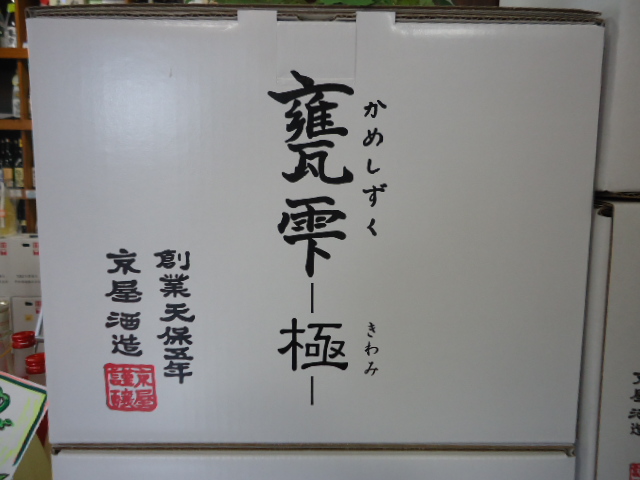 かめしずく
甕雫
－極－
きわみ
創業天保五年
京屋酒造
京屋
謹醸
京屋酒造